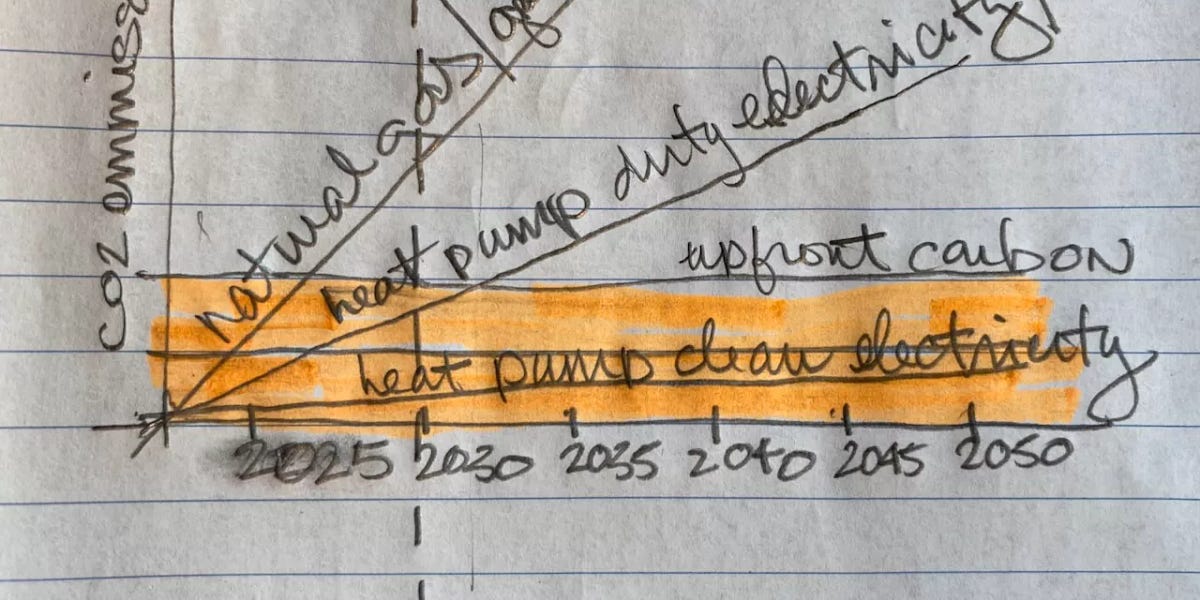 CO2 emmiss
natural gas/
heat pump duty electricity
upfront carbon
heat pump clean electricity
2025 2030 2035 2040 2045 2050